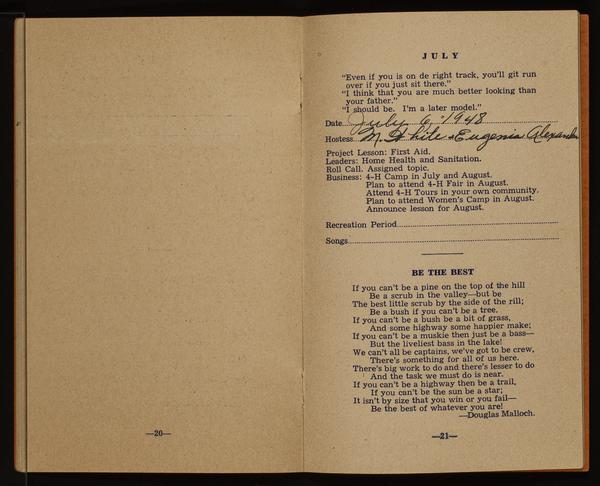 —20—
JULY
"Even if you is on de right track, you'll git run
over if you just sit there."
"I think that you are much better looking than
your father."
"I should be. I'm a later model."
Date July 6, 1948
Hostess M. White & Eugenia Alexander
Project Lesson: First Aid.
Leaders: Home Health and Sanitation.
Roll Call. Assigned topic.
Business: 4-H Camp in July and August.
Plan to attend 4-H Fair in August.
Attend 4-H Tours in your own community.
Plan to attend Women's Camp in August.
Announce lesson for August.
Recreation Period
Songs
BE THE BEST
If you can't be a pine on the top of the hill
Be a scrub in the valley—but be
The best little scrub by the side of the rill;
Be a bush if you can't be a tree.
If you can't be a bush be a bit of grass,
And some highway some happier make;
If you can't be a muskie then just be a bass—
But the liveliest bass in the lake!
We can't all be captains, we've got to be crew,
There's something for all of us here.
There's big work to do and there's lesser to do
And the task we must do is near.
If you can't be a highway then be a trail,
If you can't be the sun be a star;
It isn't by size that you win or you fail—
Be the best of whatever you are!
—Douglas Malloch.
—21—